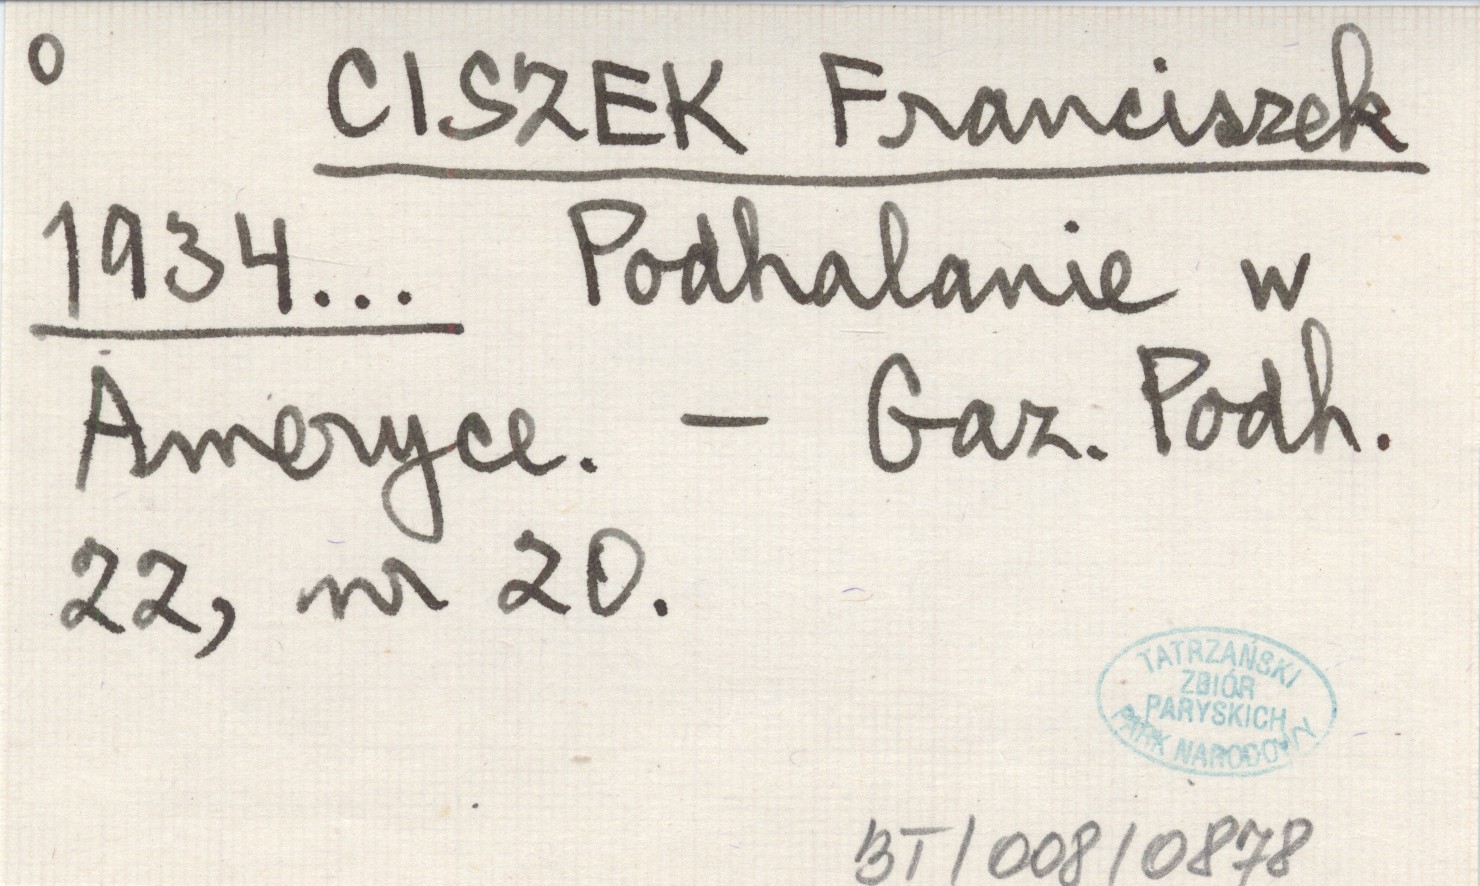 o CISZEK Franciszek
1934... Podhalanie w
Ameryce. — Gaz. Podh.
22, nr 20.
TATRZAŃSKI
ZBIÓR
PARYSKICH
PARK NARODOWY
BT/008/0878